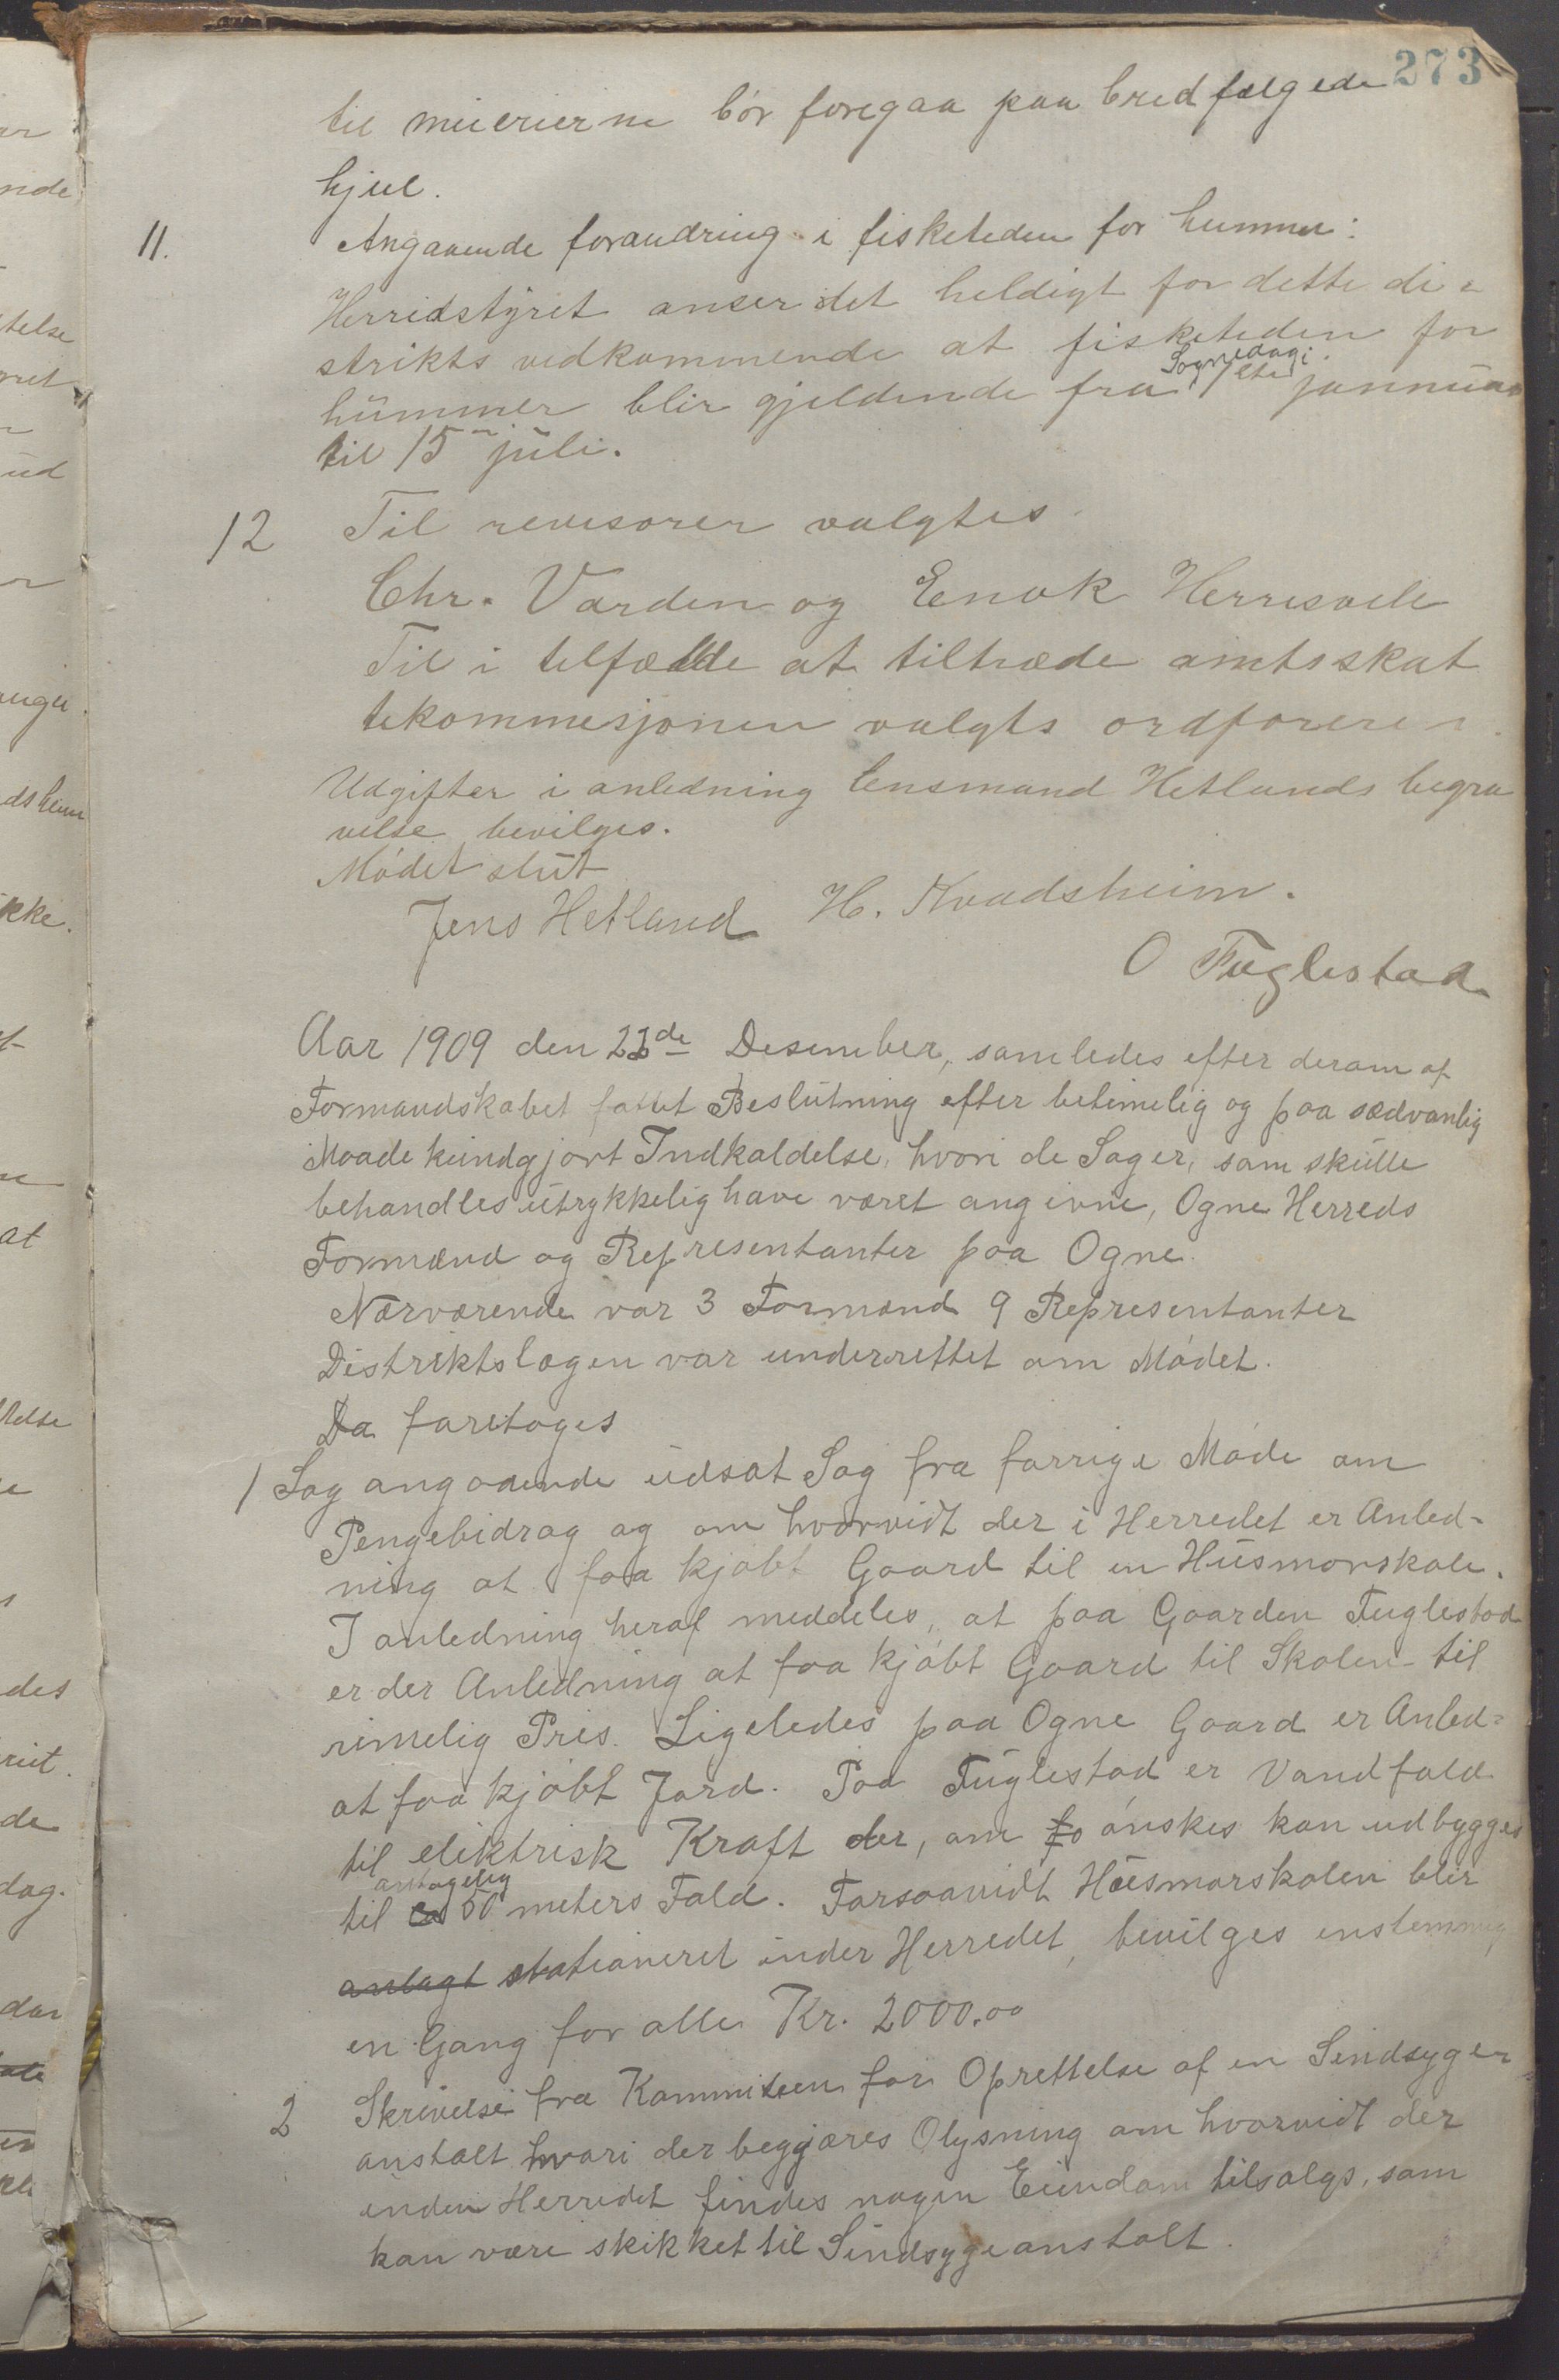 273
til meierierne bör foregaa paa bredfælgede
hjul.
11. Angaaende forandring i fisketeden for hummer:
Herridstyret anser det heldigt for dette di=
strikts vedkommende at fisketeden for
Sognedag i
hummer blir gjeldende fra 1ste jannuar
til 15 juli.
12 Til revisorer valgtes
Chr. Varden og Enok Herresvele
Til i telfælde at tiltræde amtsskat
tekommesjonen valgts ordförere
Udgifter i anledning lensmand Hetlands begra
velse bevilges.
Mödet slut
Jens Hetland H. Kvadsheim.
O Fuglestad
Aar 1909 den 23de Desember, samledes efter derom af
Formandskabet fattet Beslutning efter betimelig og paa sædvanlig
Maade kundgjort Indkaldelse, hvori de Sager, som skulle
behandles utrykkelig have været angivne, Ogne Herreds
Formænd og Representanter paa Ogne.
Nærværende var 3 Formænd 9 Representanter
Distriktslægen var underrettet om Mödet.
Da foretoges
1 Sag angaaende udsat Sag fra forrige Möde om
Pengebidrag og om hvorvidt der i Herredet er Anled-
ning at faa kjöbt Gaard til en Husmorskole.
I anledning heraf meddeles, at paa Gaarden Fuglestad
er der Anledning at faa kjöbt Gaard til Skolen til
rimelig Pris. Ligeledes paa Ogne Gaard er Anled=
at faa kjöbt Jord. Paa Fuglestad er Vandfald
til eliktrisk Kraft der, om fo önskes kan udbygges
antagelig
til ca 50 meters Fald. Forsaavidt Husmorskolen blir
anlagt stationeret inder Herredet, bevilges enstemmig
en Gang for alle Kr. 2000.00
2 Skrivelse fra Kommiteen for Oprettelse af en Sindsyge=
anstalt hvori der begjæres Olysning om hvorvidt der
inden Herredet findes nogen Eiendom tilsalgs, som
kan være skikket til Sindsygeanstalt.